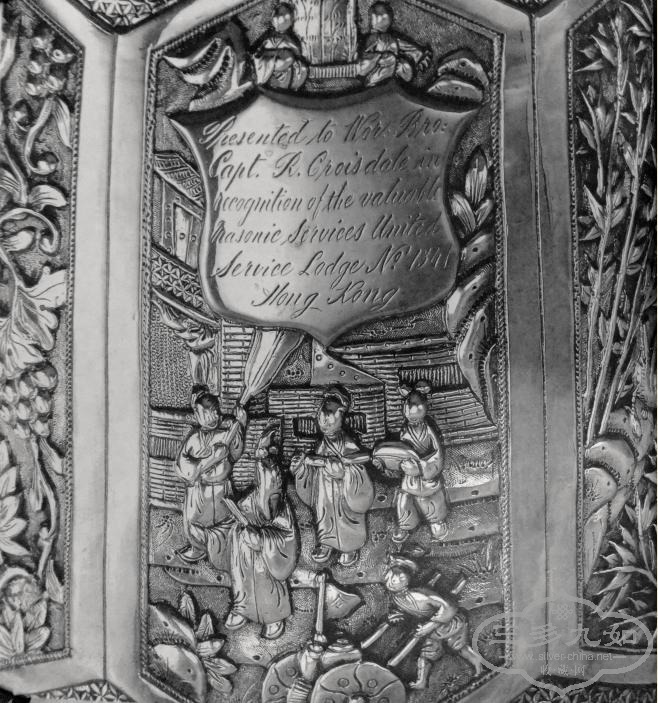 Presented to Wor. Bro:
Capt. R. Croisdale in
recognition of the valuable
masonic services United
Service Lodge No. 1341
Hong Kong
三多九如
www.silver-china.net
收藏网